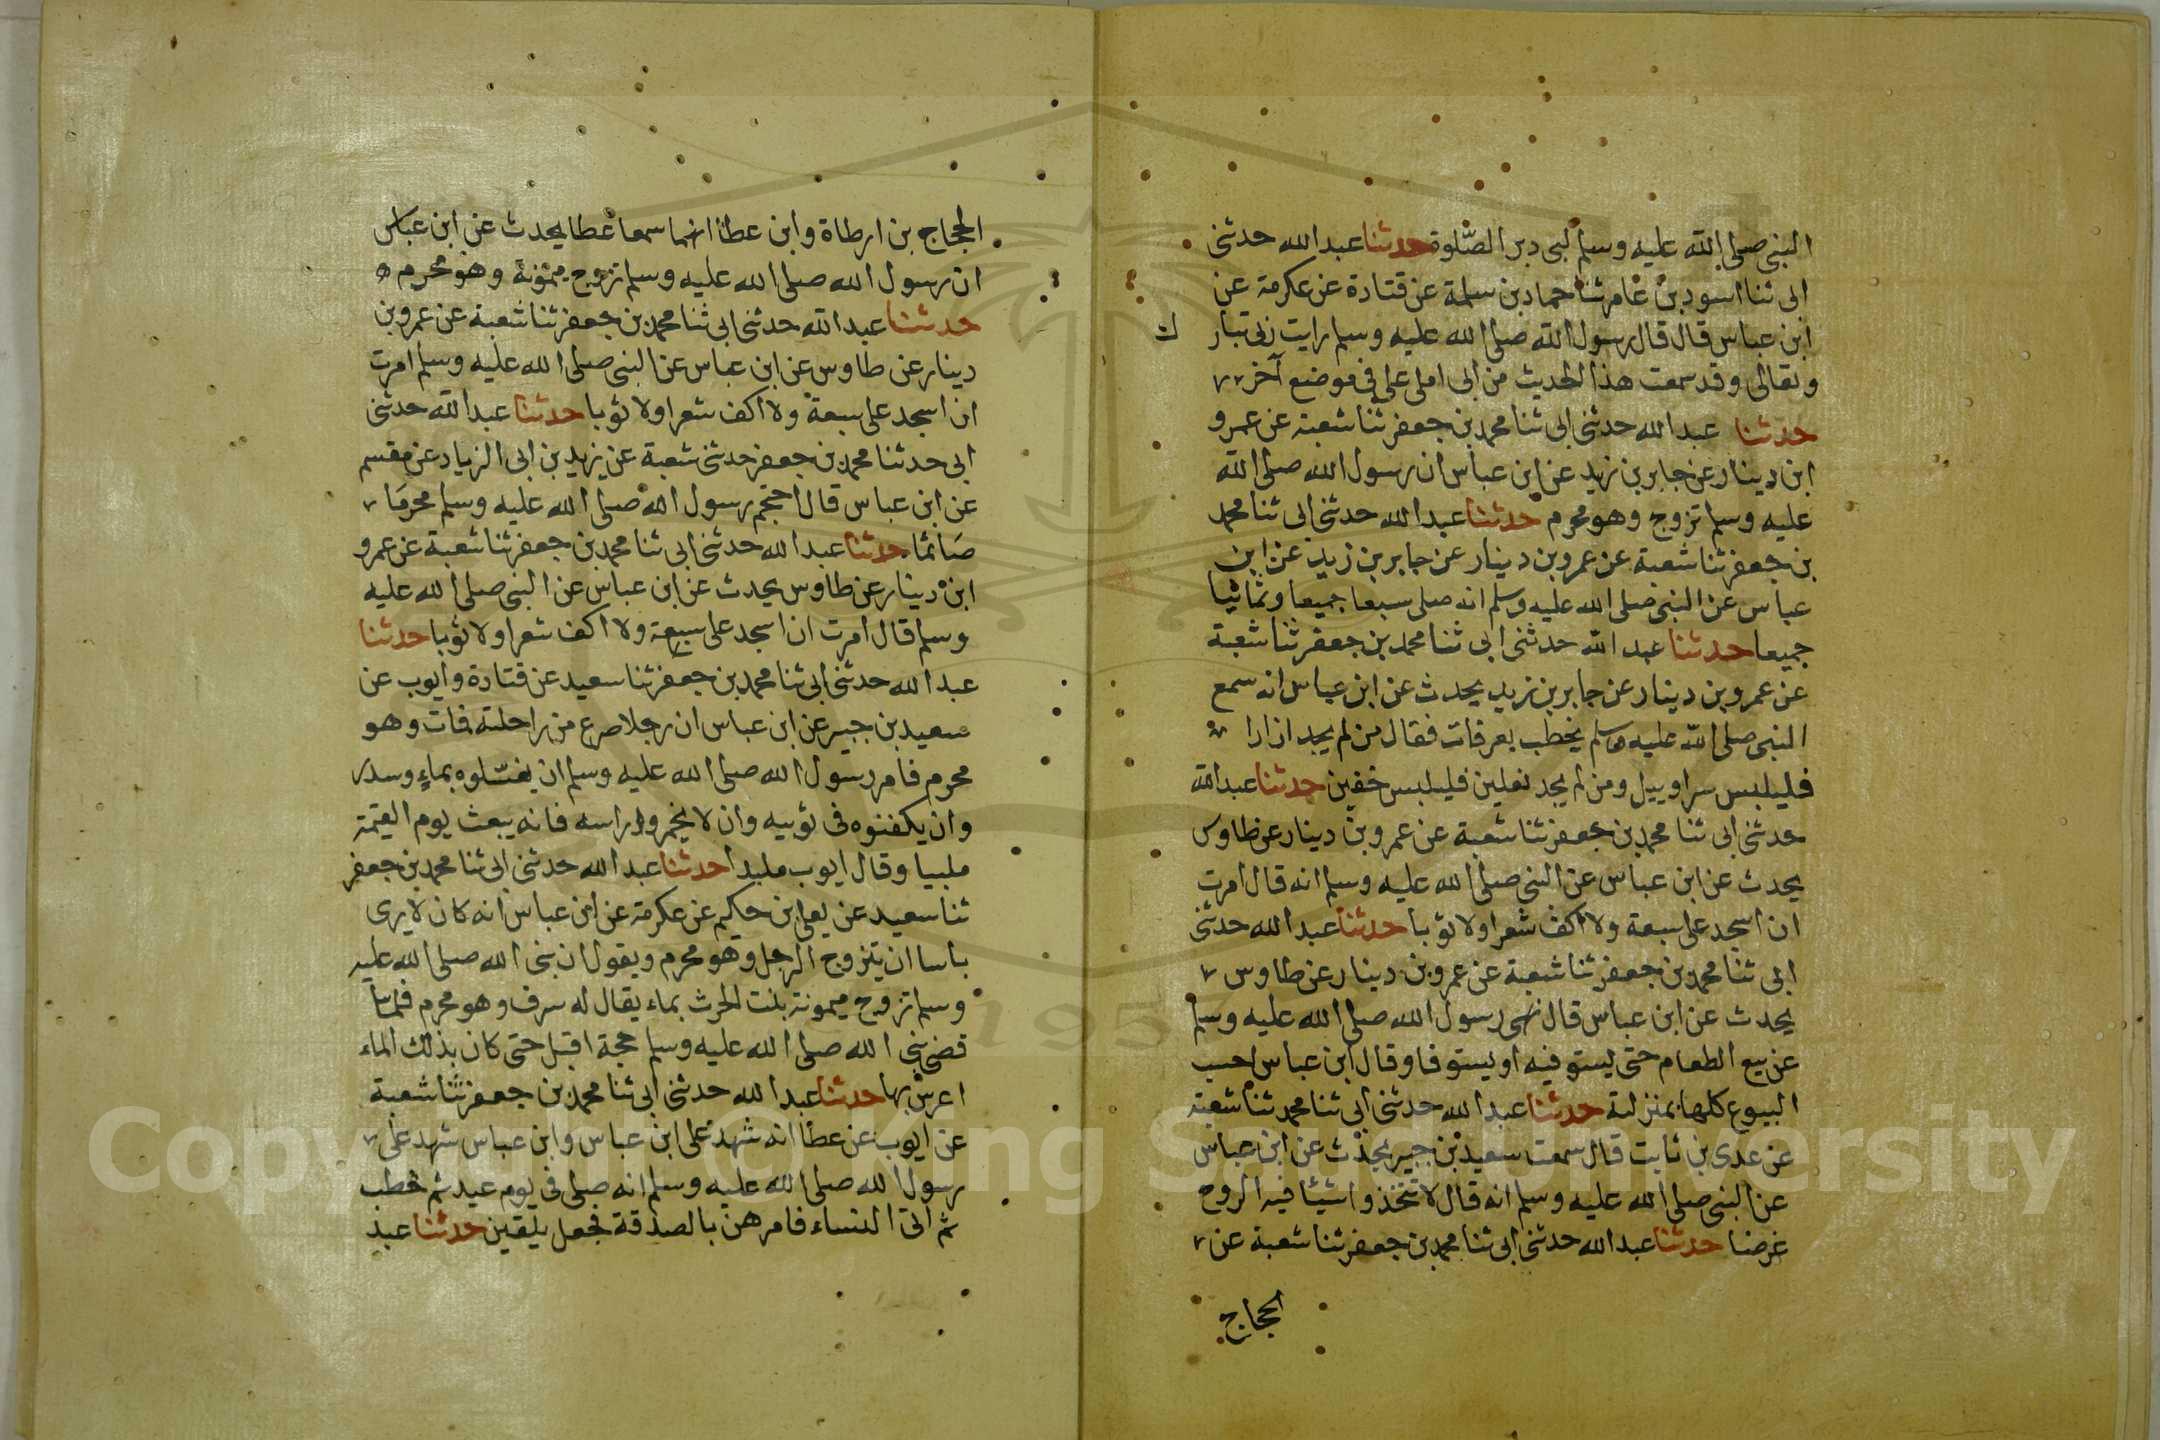 النبي صلى الله عليه وسلم لبى دبر الصلوة حدثنا عبد الله حدثني
ابى ثنا اسود بن عامر ثنا حماد بن سلمة عن قتادة عن عكرمة عن
ابن عباس قال قال رسول الله صلى الله عليه وسلم رايت ربى تبار
ك
وتعالى وقد سمعت هذا الحديث من ابى املى على فى موضع آخر
حدثنا عبد الله حدثنى ابى ثنا محمد بن جعفر ثنا شعبة عن عمرو
ابن دينار عن جابر بن زيد عن ابن عباس ان رسول الله صلى الله
عليه وسلم تزوج وهو محرم حدثنا عبد الله حدثنى ابى ثنا محمد
بن جعفر ثنا شعبة عن عمرو بن دينار عن جابر بن زيد عن ابن
عباس عن النبى صلى الله عليه وسلم انه صلى سبعا جميعا وثمانيا
جميعا حدثنا عبد الله حدثنى ابى ثنا محمد بن جعفر ثنا شعبة
عن عمرو بن دينار عن جابر بن زيد يحدث عن ابن عباس انه سمع
النبى صلى الله عليه وسلم يخطب بعرفات فقال من لم يجد ازارا
فليلبس سراوييل ومن لم يجد نعلين فليلبس خفين حدثنا عبد الله
حدثنى ابى ثنا محمد بن جعفر ثنا شعبة عن عمرو بن دينار عن طاوس
يحدث عن ابن عباس عن النبى صلى الله عليه وسلم انه قال امرت
ان اسجد على سبعة ولا اكف شعرا ولا ثوبا حدثنا عبد الله حدثنى
ابى ثنا محمد بن جعفر ثنا شعبة عن عمرو بن دينار عن طاوس
يحدث عن ابن عباس قال نهى رسول الله صلى الله عليه وسلم
عن بيع الطعام حتى يستوفيه او يستوفا وقال ابن عباس احسب
البيوع كلها بمنزلة حدثنا عبد الله حدثنى ابى ثنا محمد ثنا شعبة
عن عدى بن ثابت قال سمعت سعيد بن جبير يحدث عن ابن عباس
عن النبى صلى الله عليه وسلم انه قال لا تتخذوا شيئا فيه الروح
غرضا حدثنا عبد الله حدثنى ابى ثنا محمد بن جعفر ثنا شعبة عن
الحجاج
الحجاج بن ارطاة وابن عطا انهما سمعا عطا يحدث عن ابن عباس
ان رسول الله صلى الله عليه وسلم تزوج ميمونة وهو محرم
حدثنا عبد الله حدثنى ابى ثنا محمد بن جعفر ثنا شعبة عن عمرو بن
دينار عن طاوس عن ابن عباس عن النبى صلى الله عليه وسلم امرت
ان اسجد على سبعة ولا اكف شعرا ولا ثوبا حدثنا عبد الله حدثنى
ابى حدثنا محمد بن جعفر حدثنى شعبة عن يزيد بن ابى الزياد عن مقسم
عن ابن عباس قال احتجم رسول الله صلى الله عليه وسلم محرما
صائما حدثنا عبد الله حدثنى ابى ثنا محمد بن جعفر ثنا شعبة عن عمرو
ابن دينار عن طاوس يحدث عن ابن عباس عن النبى صلى الله عليه
وسلم قال امرت ان اسجد على سبعة ولا اكف شعرا ولا ثوبا حدثنا
عبد الله حدثنى ابى ثنا محمد بن جعفر ثنا سعيد عن قتادة وايوب عن
سعيد بن جبير عن ابن عباس ان رجلا صرع من راحلته فمات وهو
محرم فامر رسول الله صلى الله عليه وسلم ان يغسلوه بماء وسدر
وان يكفنوه فى ثوبيه وان لا يخمروا راسه فانه يبعث يوم القيمة
ملبيا وقال ايوب ملبدا حدثنا عبد الله حدثنى ابى ثنا محمد بن جعفر
ثنا سعيد عن يعلى بن حكيم عن عكرمة عن ابن عباس انه كان لا يرى
باسا ان يتزوج الرجل وهو محرم ويقول ان نبى الله صلى الله عليه
وسلم تزوج ميمونة بنت الحرث بماء يقال له سرف وهو محرم فلما
قضى نبى الله صلى الله عليه وسلم حجة اقبل حتى كان بذلك الماء
اعرس بها حدثنا عبد الله حدثنى ابى ثنا محمد بن جعفر ثنا شعبة
عن ايوب عن عطا انه شهد على ابن عباس وابن عباس شهد على
رسول الله صلى الله عليه وسلم انه صلى فى يوم عيد ثم خطب
ثم اتى النساء فامرهن بالصدقة فجعل يلقين حدثنا عبد
Copyright © King Saud University
1957